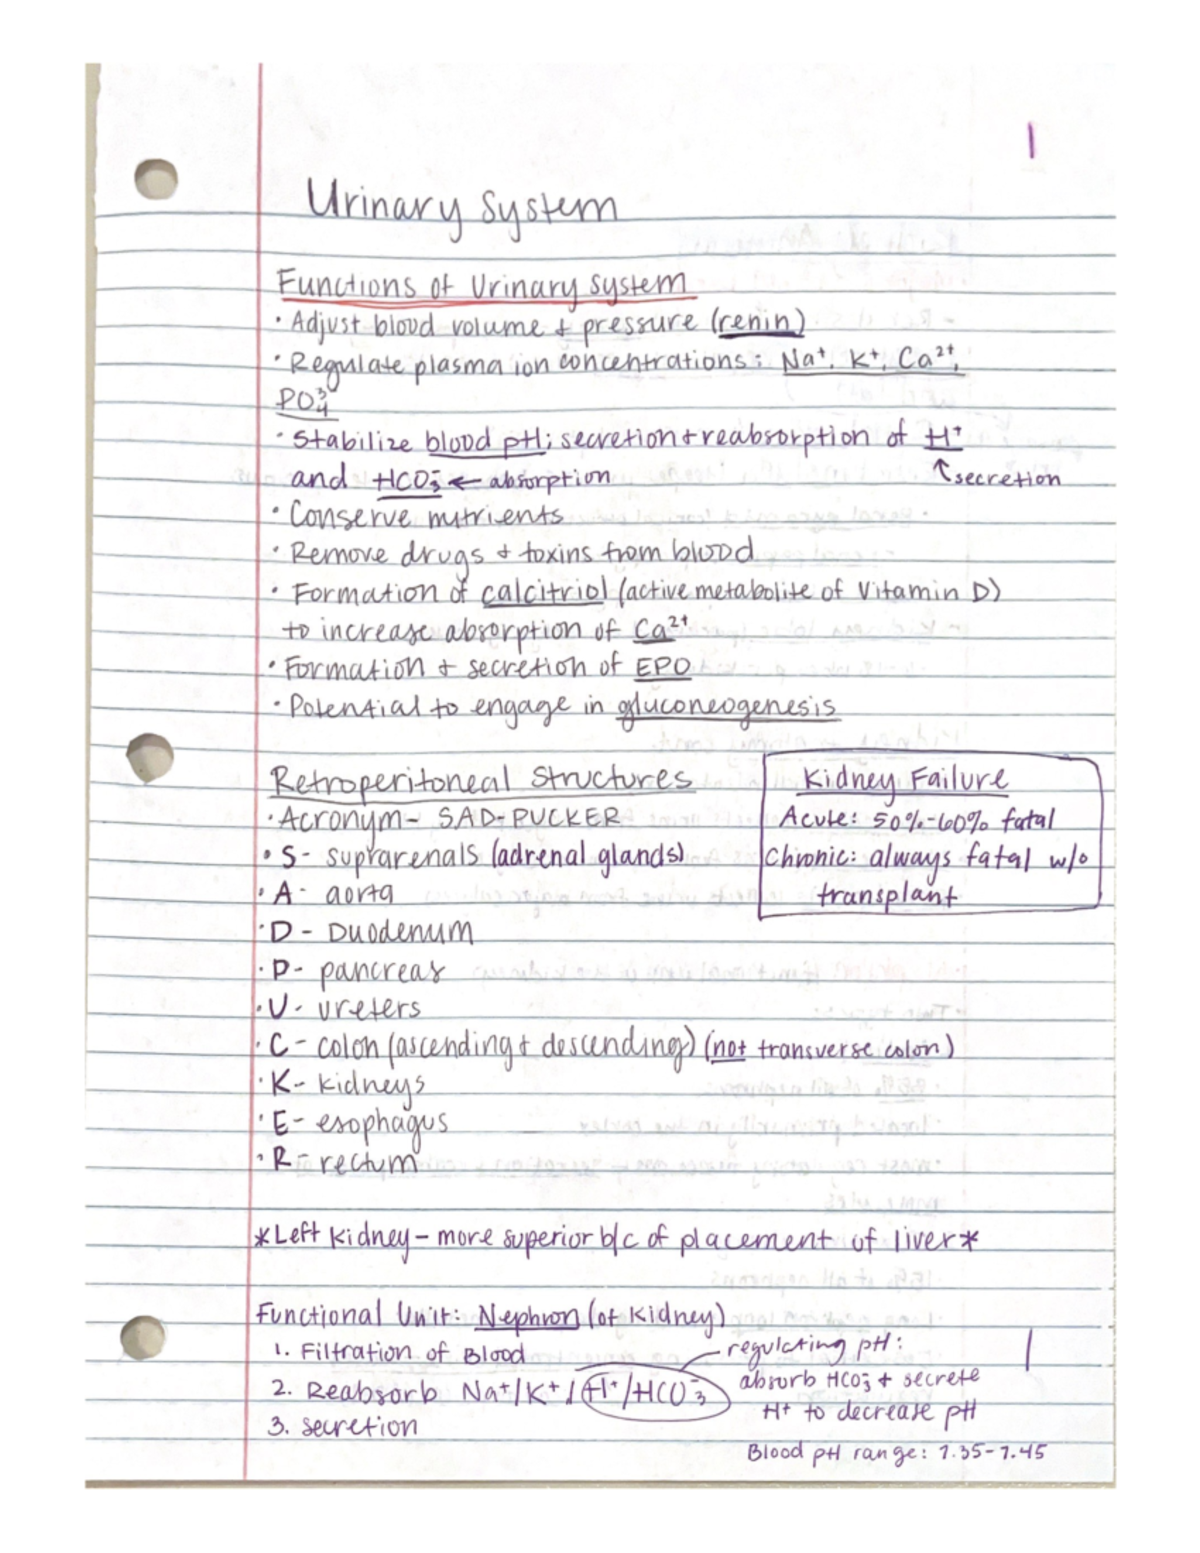 1
Urinary System
Functions of Urinary System
· Adjust blood volume + pressure (renin)
· Regulate plasma ion concentrations: Na⁺, K⁺, Ca²⁺,
PO₄³⁻
· Stabilize blood pH; secretion + reabsorption of H⁺
and HCO₃⁻ ← absorption ↑ secretion
· Conserve nutrients
· Remove drugs + toxins from blood
· Formation of calcitriol (active metabolite of Vitamin D)
to increase absorption of Ca²⁺
· Formation + secretion of EPO
· Potential to engage in gluconeogenesis
Retroperitoneal Structures
· Acronym - SAD-PUCKER
· S - suprarenals (adrenal glands)
· A - aorta
· D - Duodenum
· P - pancreas
· U - ureters
· C - colon (ascending + descending) (not transverse colon)
· K - kidneys
· E - esophagus
· R - rectum
Kidney Failure
Acute: 50%-60% fatal
Chronic: always fatal w/o
transplant
*Left kidney - more superior b/c of placement of liver*
Functional Unit: Nephron (of kidney)
1. Filtration of Blood
2. Reabsorb Na⁺/K⁺/H⁺/HCO₃⁻
3. secretion
regulating pH:
absorb HCO₃⁻ + secrete
H⁺ to decrease pH
Blood pH range: 7.35-7.45
1